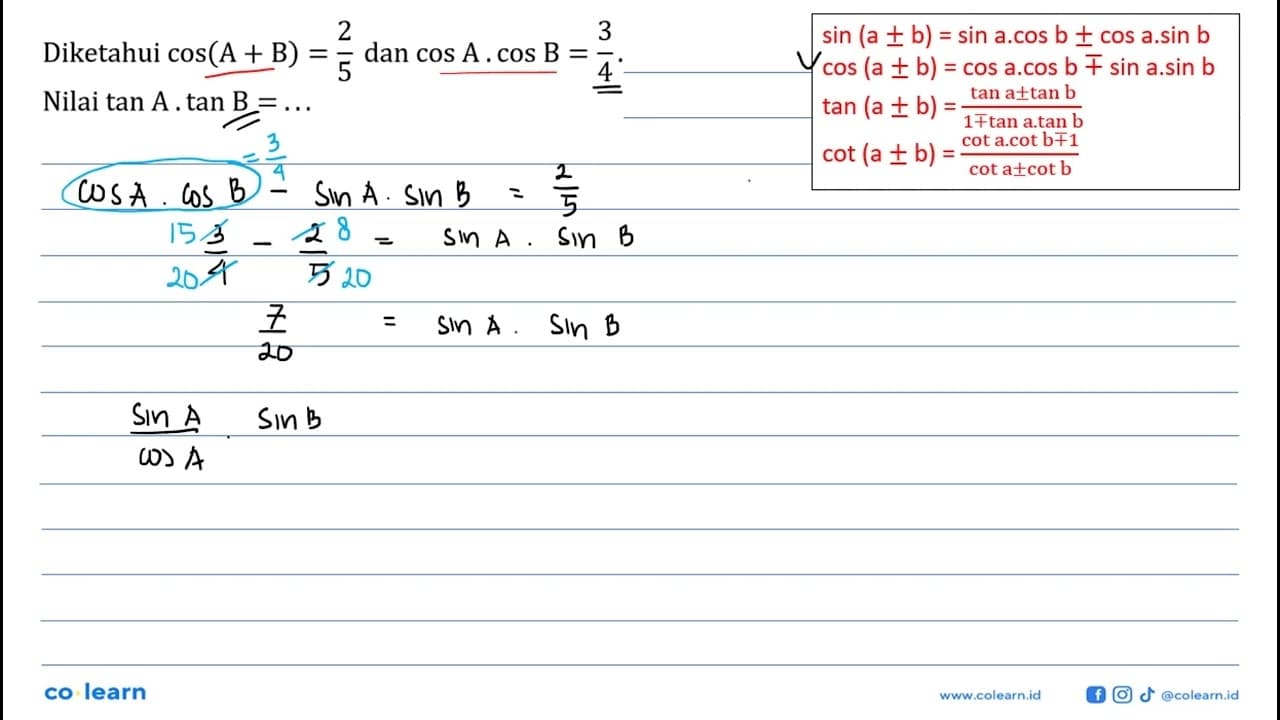 Diketahui cos(A + B) = 2/5 dan cos A . cos B = 3/4.
Nilai tan A . tan B = ...
sin (a ± b) = sin a.cos b ± cos a.sin b
cos (a ± b) = cos a.cos b ∓ sin a.sin b
tan (a ± b) = tan a±tan b / 1∓tan a.tan b
cot (a ± b) = cot a.cot b∓1 / cot a±cot b
= 3/4
cos A . cos B - sin A . sin B = 2/5
15 3/20 4 - 2 8/5 20 = sin A . sin B
7/20 = sin A . sin B
sin A/cos A . sin B
co learn
www.colearn.id @colearn.id